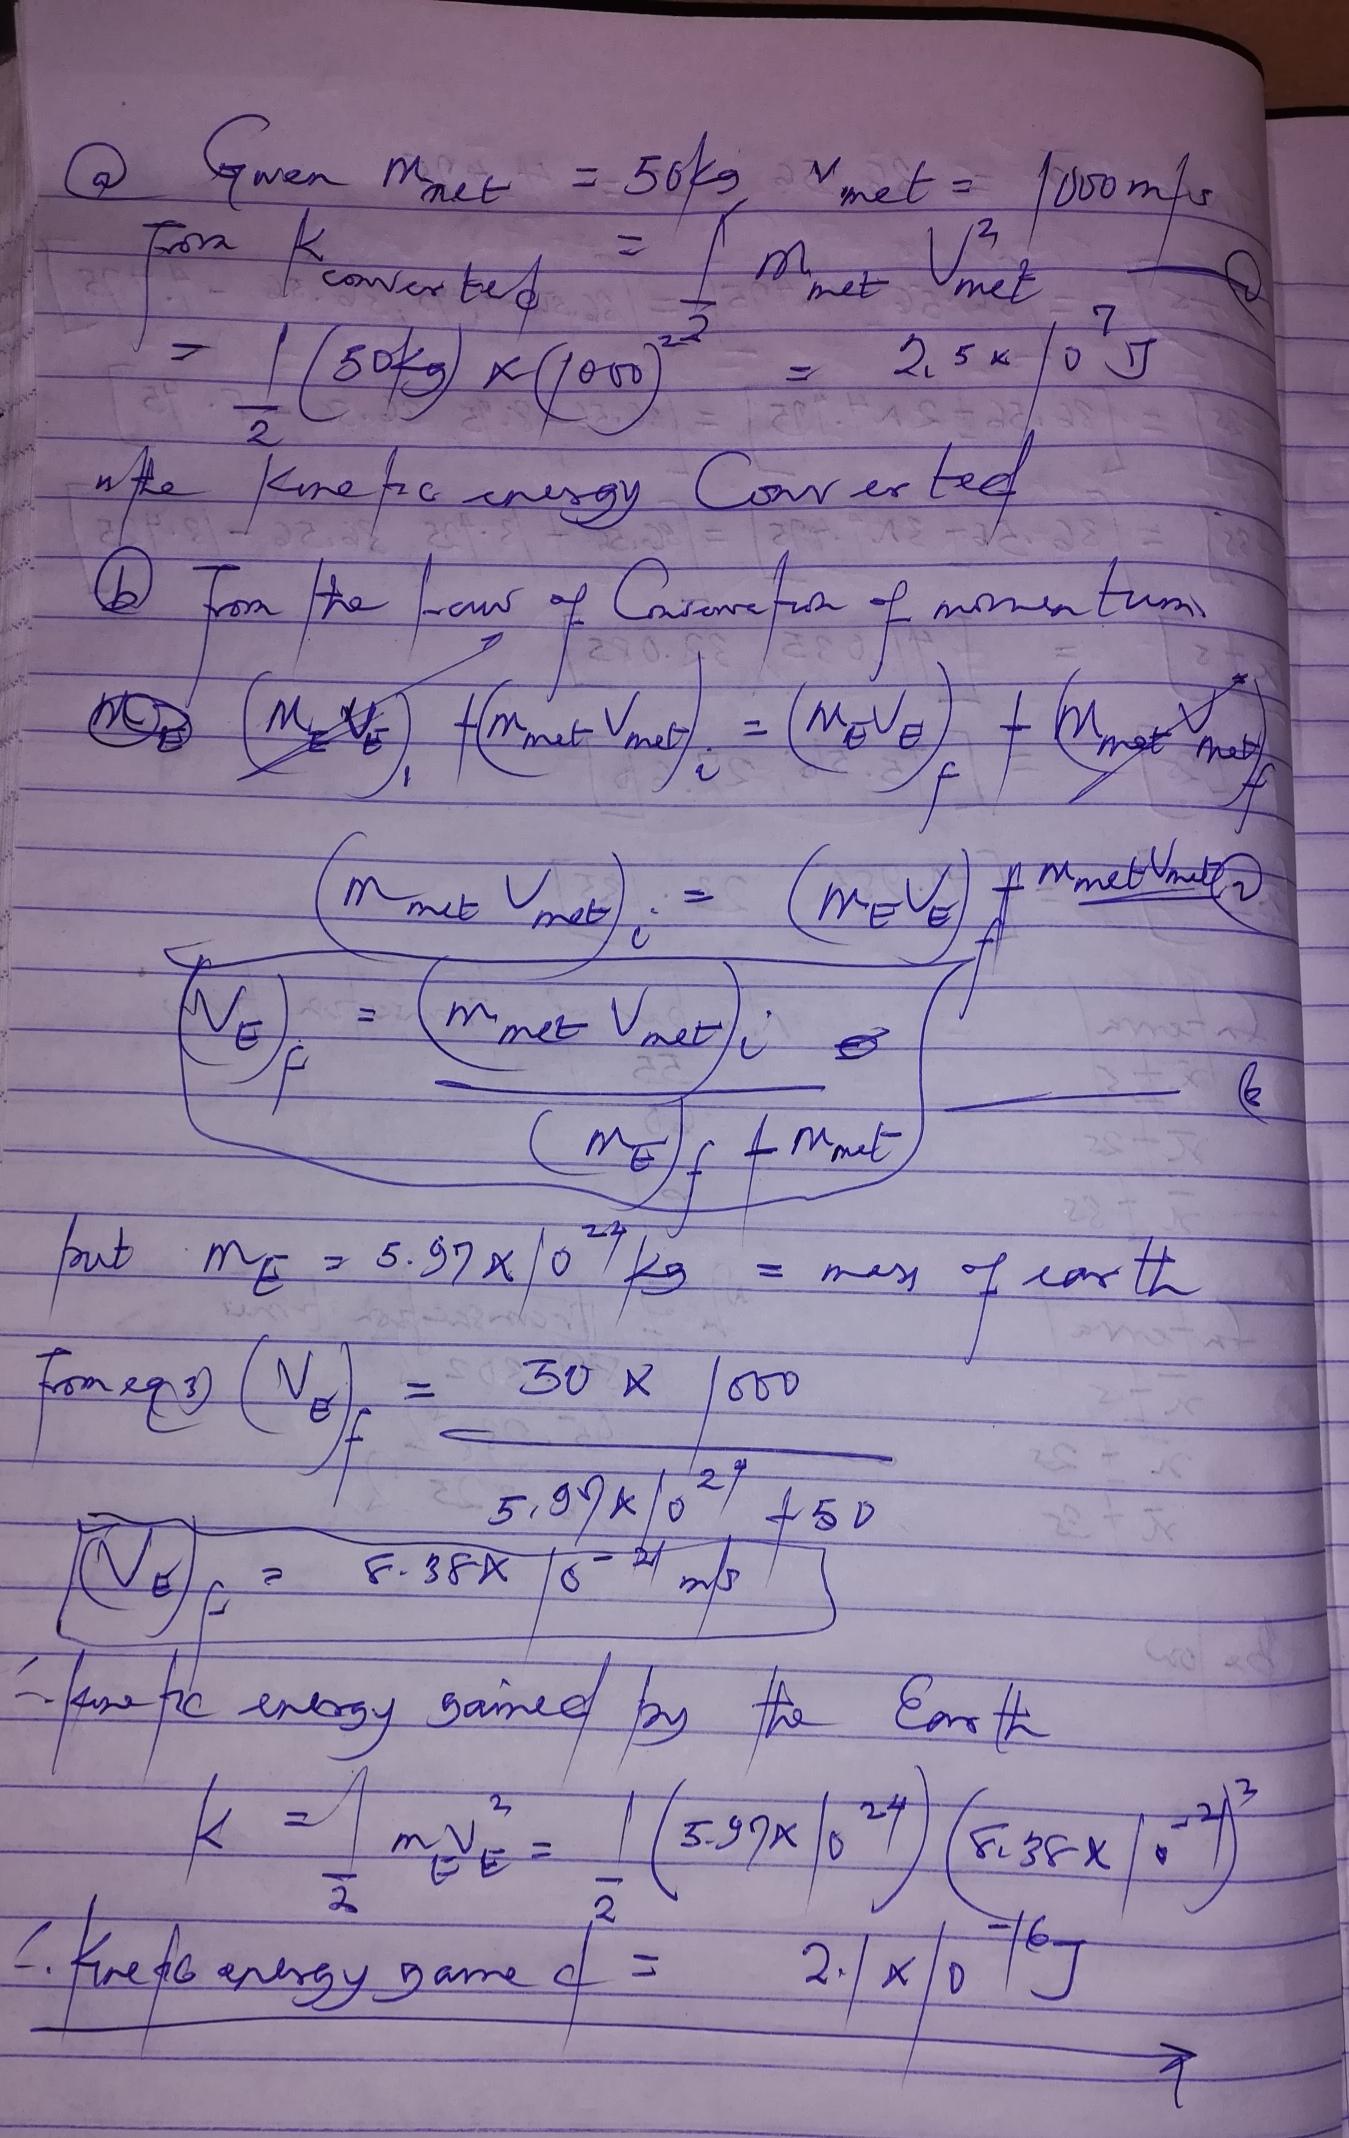 (a) Given m_met = 50kg, v_met = 1000 m/s
From K_converted = 1/2 m_met V²_met — (1)
= 1/2 (50kg) × (1000)² = 2.5 × 10⁷ J
is the Kinetic energy Converted
(b) From the Law of Conservation of momentum
(M_E V_E)_i + (m_met V_met)_i = (M_E V_E)_f + (M_met V_met)_f
(m_met V_met)_i = (M_E V_E)_f + m_met V_met (2)
(V_E)_f = (m_met V_met)_i / (m_E)_f + m_met —
but m_E = 5.97 × 10²⁴ kg = mass of earth
From eq 3) (V_E)_f = 50 × 1000 / 5.97 × 10²⁴ + 50
(V_E)_f = 8.38 × 10⁻²¹ m/s
∴ kinetic energy gained by the Earth
K = 1/2 m_E V_E² = 1/2 (5.97 × 10²⁴) (8.38 × 10⁻²¹)²
∴ Kinetic energy gained = 2.1 × 10⁻¹⁶ J